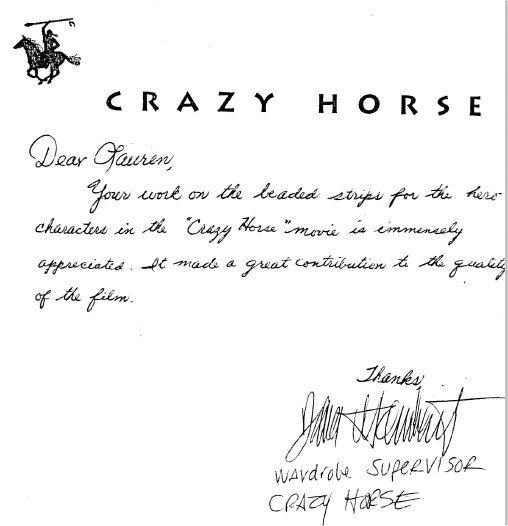 CRAZY HORSE
Dear Lauren,
Your work on the beaded strips for the hero
characters in the "Crazy Horse" movie is immensely
appreciated. It made a great contribution to the quality
of the film.
Thanks,
WARDROBE SUPERVISOR
CRAZY HORSE